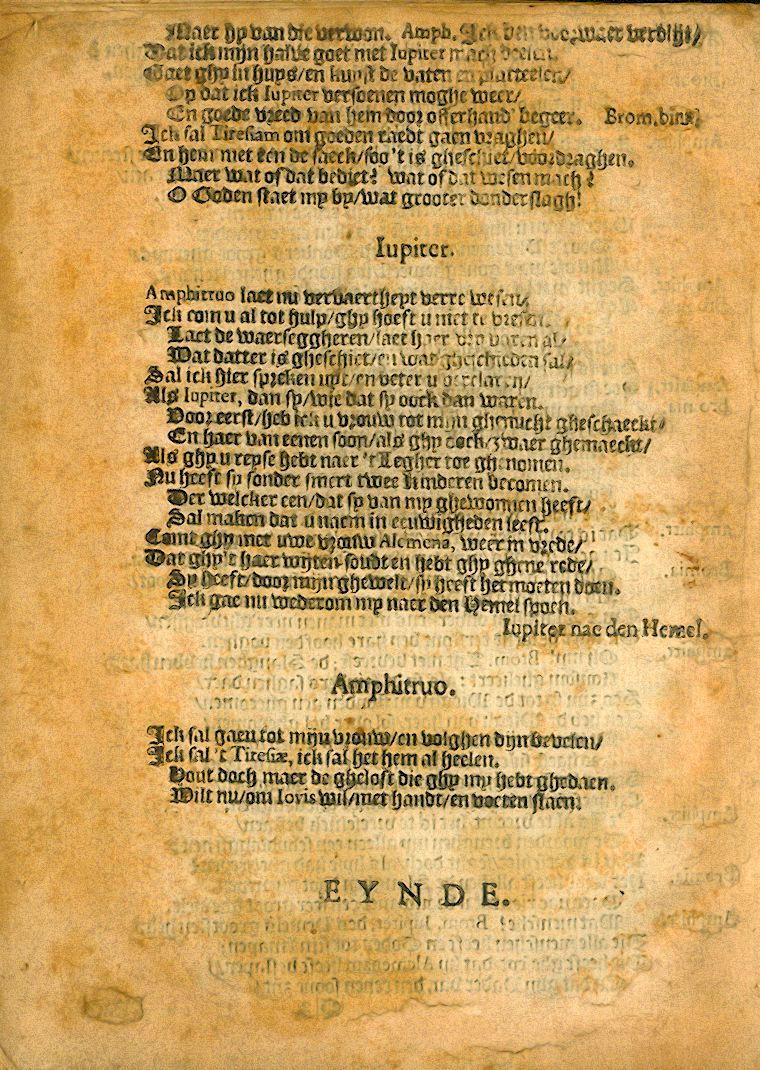 Maer hy van die verwon. Amph. Ick ben voorwaer verblijt/
Dat ick mijn halve goet met Iupiter mach deelen.
Gaet ghy in huys/en kuyst de vaten en platteelen/
Op dat ick Iupiter versoenen moghe weer/
En goede vreed van hem door offerhand' begeer. Brom. bin.
Ick sal Tiresiam om goeden raedt gaen vraghen/
En hem met een de saeck/soo 't is gheschiet/voordraghen.
Maer wat of dat bediet? wat of dat wesen mach?
O Goden staet my by/wat grooter donderslagh!
Iupiter.
Amphitruo laet nu vervaertheyt verre wesen,
Ick com u al tot hulp/ghy hoeft u niet te vresen.
Laet de waerseggheren/laet haer vry varen al/
Wat datter is gheschiet/en wat gheschieden sal/
Sal ick hier spreken uyt/en beter u verclaren/
Als Iupiter, dan sy/wie dat sy oock dan waren.
Voor eerst/heb ick u vrouw tot mijn ghenucht gheschaeckt/
En haer van eenen soon/als ghy oock/zwaer ghemaeckt/
Als ghy u reyse hebt naer 't Legher toe ghenomen.
Nu heeft sy sonder smert twee kinderen becomen.
Der welcker een/dat sy van my ghewonnen heeft/
Sal maken dat u naem in eeuwigheden leeft.
Comt ghy met uwe vrouw Alcmena, weer in vrede/
Dat ghy't haer wijten soudt en hebt ghy ghene rede/
Sy heeft/door mijn ghewelt/sy heeft het moeten doen.
Ick gae nu wederom my naer den Hemel spoen.
Iupiter nae den Hemel.
Amphitruo.
Ick sal gaen tot mijn vrouw/en volghen dijn bevelen/
Ick sal 't Tiresiæ, ick sal het hem al heelen.
Hout doch maer de gheloft die ghy my hebt ghedaen.
Wilt nu/om Iovis wil/met handt/en voeten slaen.
EYNDE.